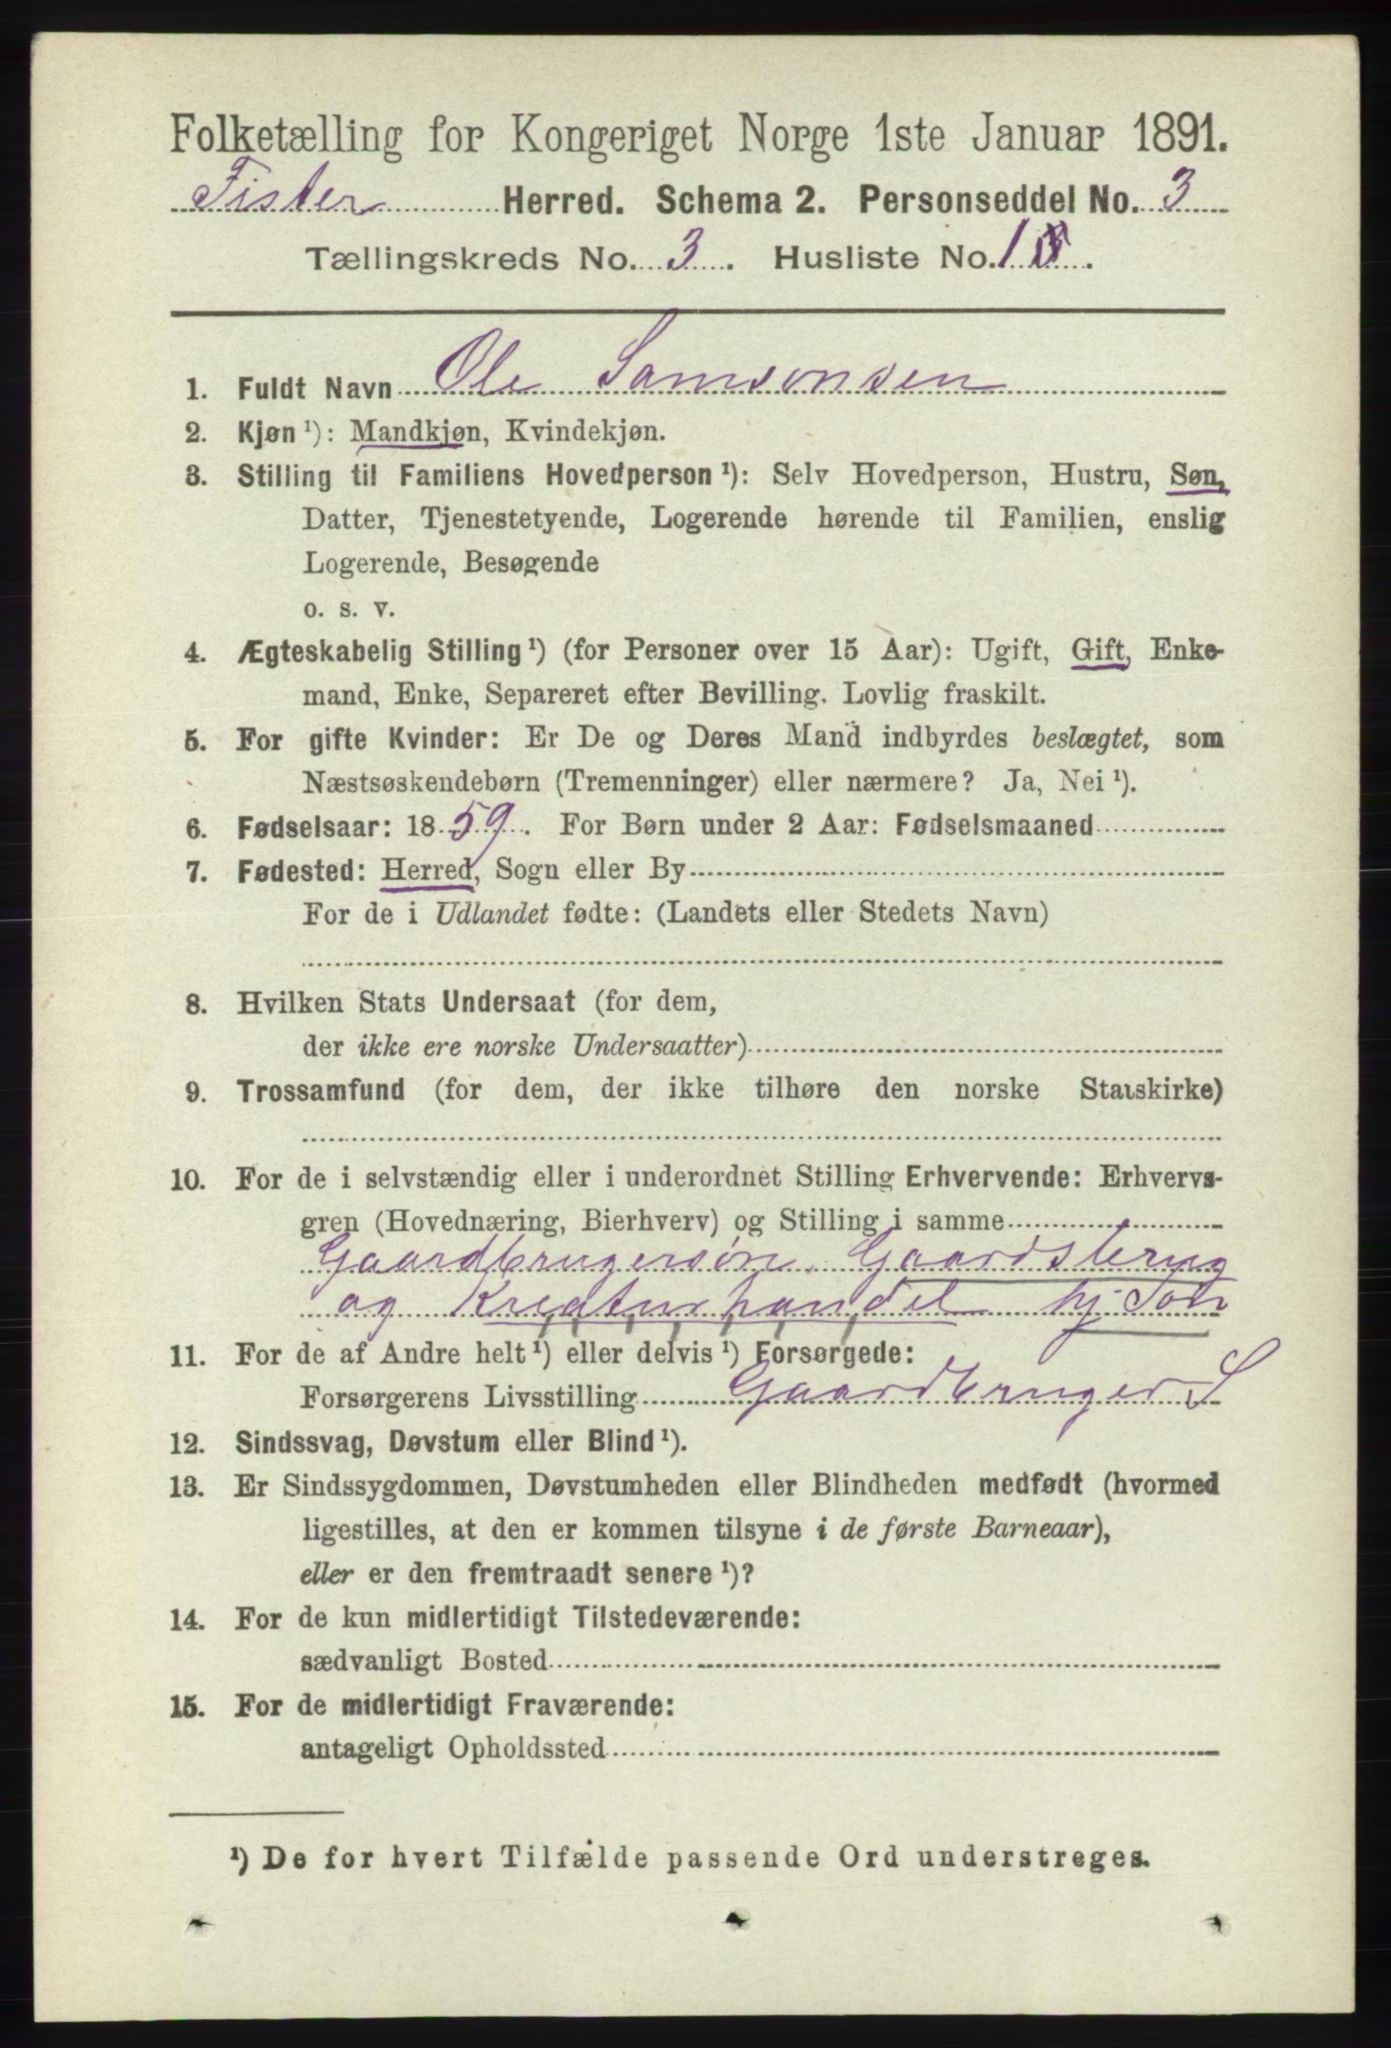 Folketælling for Kongeriget Norge 1ste Januar 1891.
Fister Herred. Schema 2. Personseddel No. 3
Tællingskreds No. 3. Husliste No.
1. Fuldt Navn Ole Samsonsen
2. Kjøn ¹): Mandkjøn, Kvindekjøn.
3. Stilling til Familiens Hovedperson ¹): Selv Hovedperson, Hustru, Søn,
Datter, Tjenestetyende, Logerende hørende til Familien, enslig
Logerende, Besøgende
o. s. v.
4. Ægteskabelig Stilling ¹) (for Personer over 15 Aar): Ugift, Gift, Enke-
mand, Enke, Separeret efter Bevilling. Lovlig fraskilt.
5. For gifte Kvinder: Er De og Deres Mand indbyrdes beslægtet, som
Næstsøskendebørn (Tremenninger) eller nærmere? Ja, Nei ¹).
6. Fødselsaar: 1859. For Børn under 2 Aar: Fødselsmaaned
7. Fødested: Herred, Sogn eller By
For de i Udlandet fødte: (Landets eller Stedets Navn)
8. Hvilken Stats Undersaat (for dem,
der ikke ere norske Undersaatter)
9. Trossamfund (for dem, der ikke tilhøre den norske Statskirke)
10. For de i selvstændig eller i underordnet Stilling Erhvervende: Erhvervs-
gren (Hovednæring, Bierhverv) og Stilling i samme
Gaardbrugersøn. Gaardsbrug
og Kreaturhandel hj. Søn
11. For de af Andre helt ¹) eller delvis ¹) Forsørgede:
Forsørgerens Livsstilling Gaardbruger S
12. Sindssvag, Døvstum eller Blind ¹).
13. Er Sindssygdommen, Døvstumheden eller Blindheden medfødt (hvormed
ligestilles, at den er kommen tilsyne i de første Barneaar),
eller er den fremtraadt senere ¹)?
14. For de kun midlertidigt Tilstedeværende:
sædvanligt Bosted
15. For de midlertidigt Fraværende:
antageligt Opholdssted
¹) De for hvert Tilfælde passende Ord understreges.